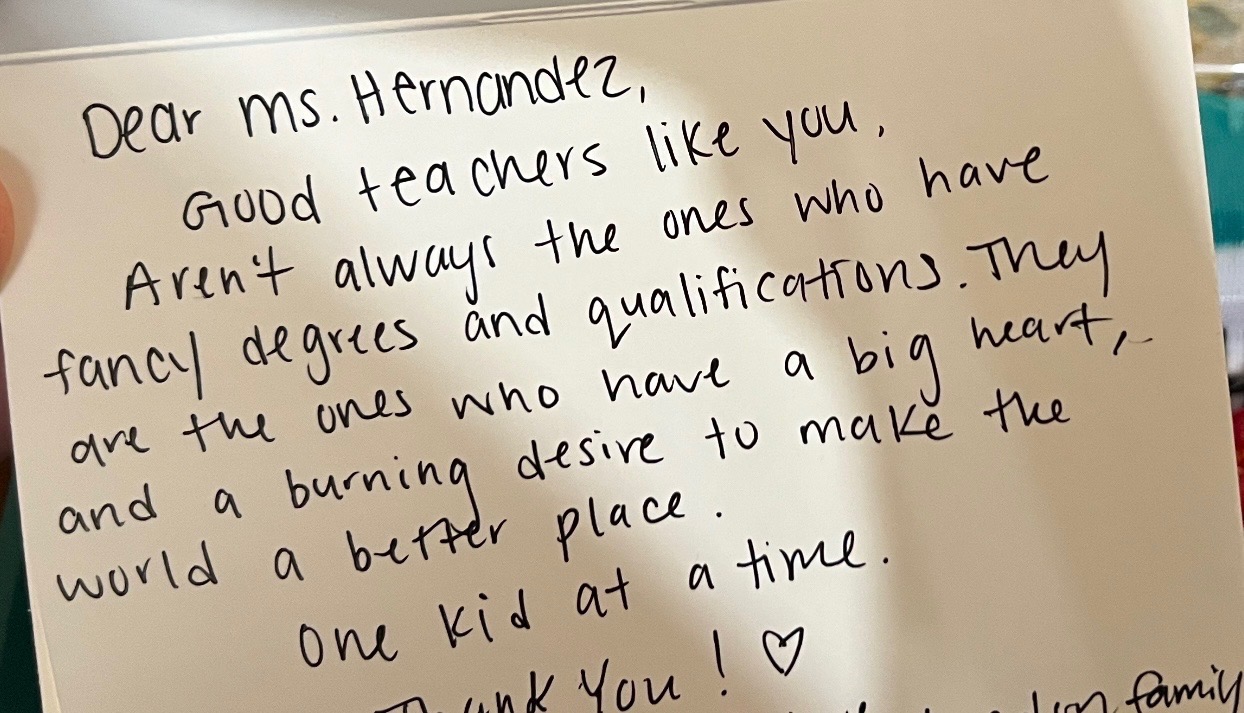 Dear Ms. Hernandez,
Good teachers like you,
Aren't always the ones who have
fancy degrees and qualifications. They
are the ones who have a big heart,
and a burning desire to make the
world a better place.
One kid at a time.
Thank You! ♡
family